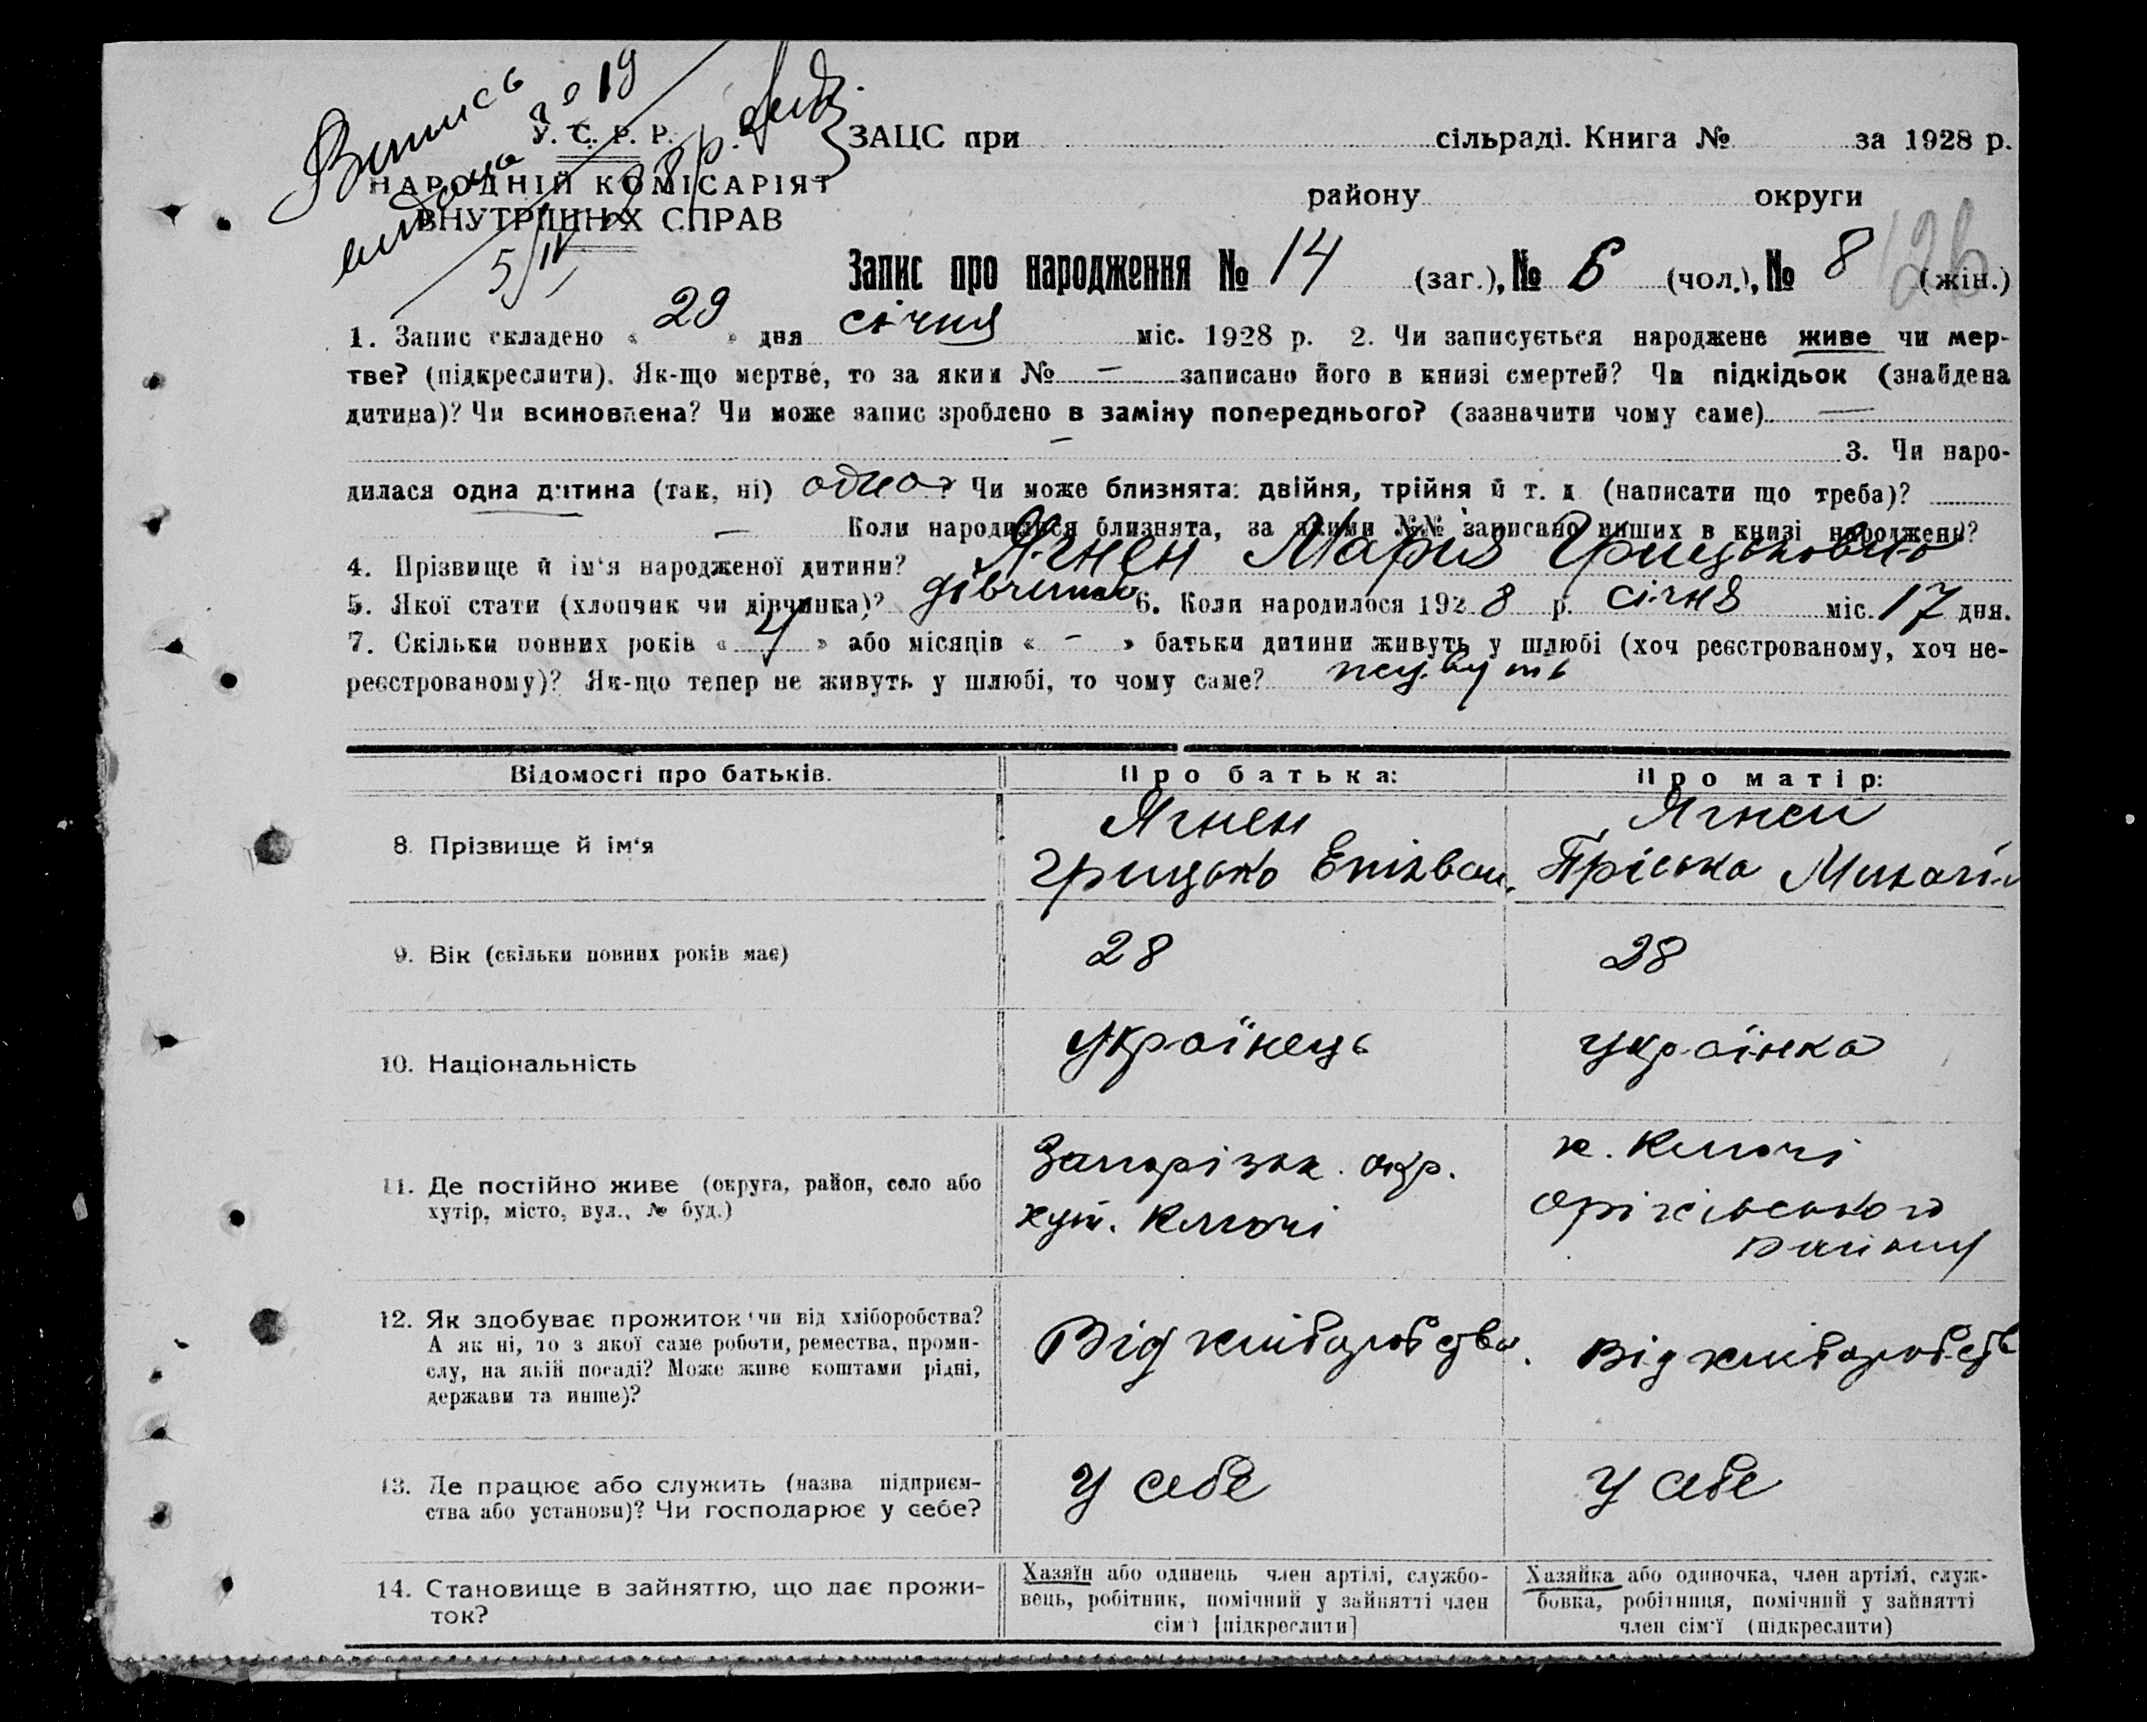 Випись
видана за 19
5/IV 28 р.
У. С. Р. Р.
НАРОДНІЙ КОМІСАРІЯТ
ВНУТРІШНІХ СПРАВ
ЗАЦС при сільраді. Книга № за 1928 р.
району округи
126
Запис про народження № 14 (заг.), № 6 (чол.), № 8 (жін.)
1. Запис складено « 29 » дня січня міс. 1928 р. 2. Чи записується народжене живе чи мер-
тве? (підкреслити). Як-що мертве, то за яким № — записано його в книзі смертей? Чи підкідьок (знайдена
дитина)? Чи всиновлена? Чи може запис зроблено в заміну попереднього? (зазначити чому саме) —
— 3. Чи наро-
дилася одна дитина (так, ні) одна? Чи може близнята: двійня, трійня й т. д. (написати що треба)?
— Коли народилися близнята, за якими №№ записано инших в книзі народжень?
4. Прізвище й ім'я народженої дитини? Ягнен Мария Грицьковно
5. Якої стати (хлопчик чи дівчинка)? дівчинка 6. Коли народилося 1928 р. січня міс. 17 дня.
7. Скільки повних років « 4 » або місяців « - » батьки дитини живуть у шлюбі (хоч реєстрованому, хоч не-
реєстрованому)? Як-що тепер не живуть у шлюбі, то чому саме?
Відомості про батьків. Про батька: Про матір:
8. Прізвище й ім'я
Ягнен
Грицько
Ягнен
Пріська
9. Вік (скільки повних років має) 28 28
10. Національність українець українка
11. Де постійно живе (округа, район, село або
хутір, місто, вул., № буд.)
Запорізьк. окр.
хут. Ключі
х. Ключі
Оріхівського
району
12. Як здобуває прожиток чи від хліборобства?
А як ні, то з якої саме роботи, ремества, проми-
слу, на якій посаді? Може живе коштами рідні,
держави та инше)?
Від хліборобства.
Від хліборобств
13. Де працює або служить (назва підприєм-
ства або установи)? Чи господарює у себе?
У себе
У себе
14. Становище в зайняттю, що дає прожи-
ток?
Хазяїн або одинець член артілі, службо-
вець, робітник, помічний у зайнятті член
сім'ї [підкреслити]
Хазяйка або одиночка, член артілі, служ-
бовка, робітниця, помічний у зайнятті
член сім'ї (підкреслити)